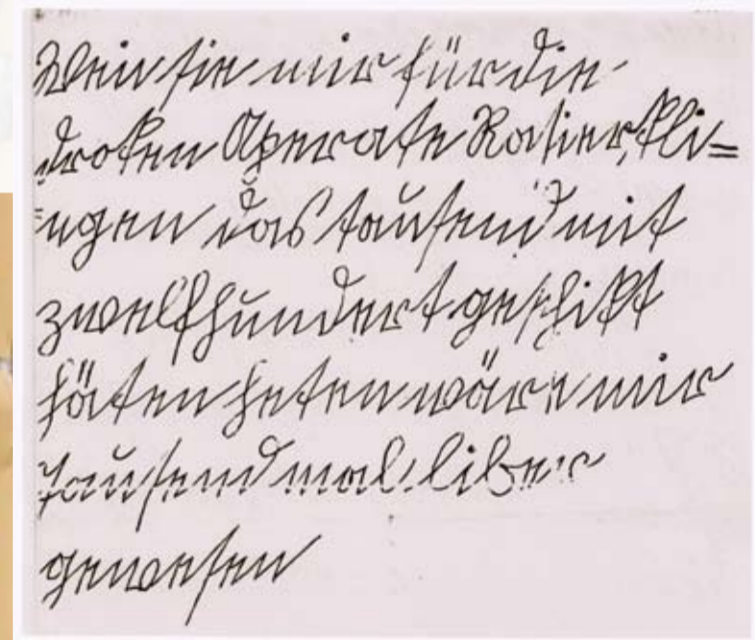 Wen sie mir für die
droken Aperate Rasierkli=
=ngen das tausend mit
zwelfhundert geschikt
häten heten wäre mir
tausend mal liber
gewesen